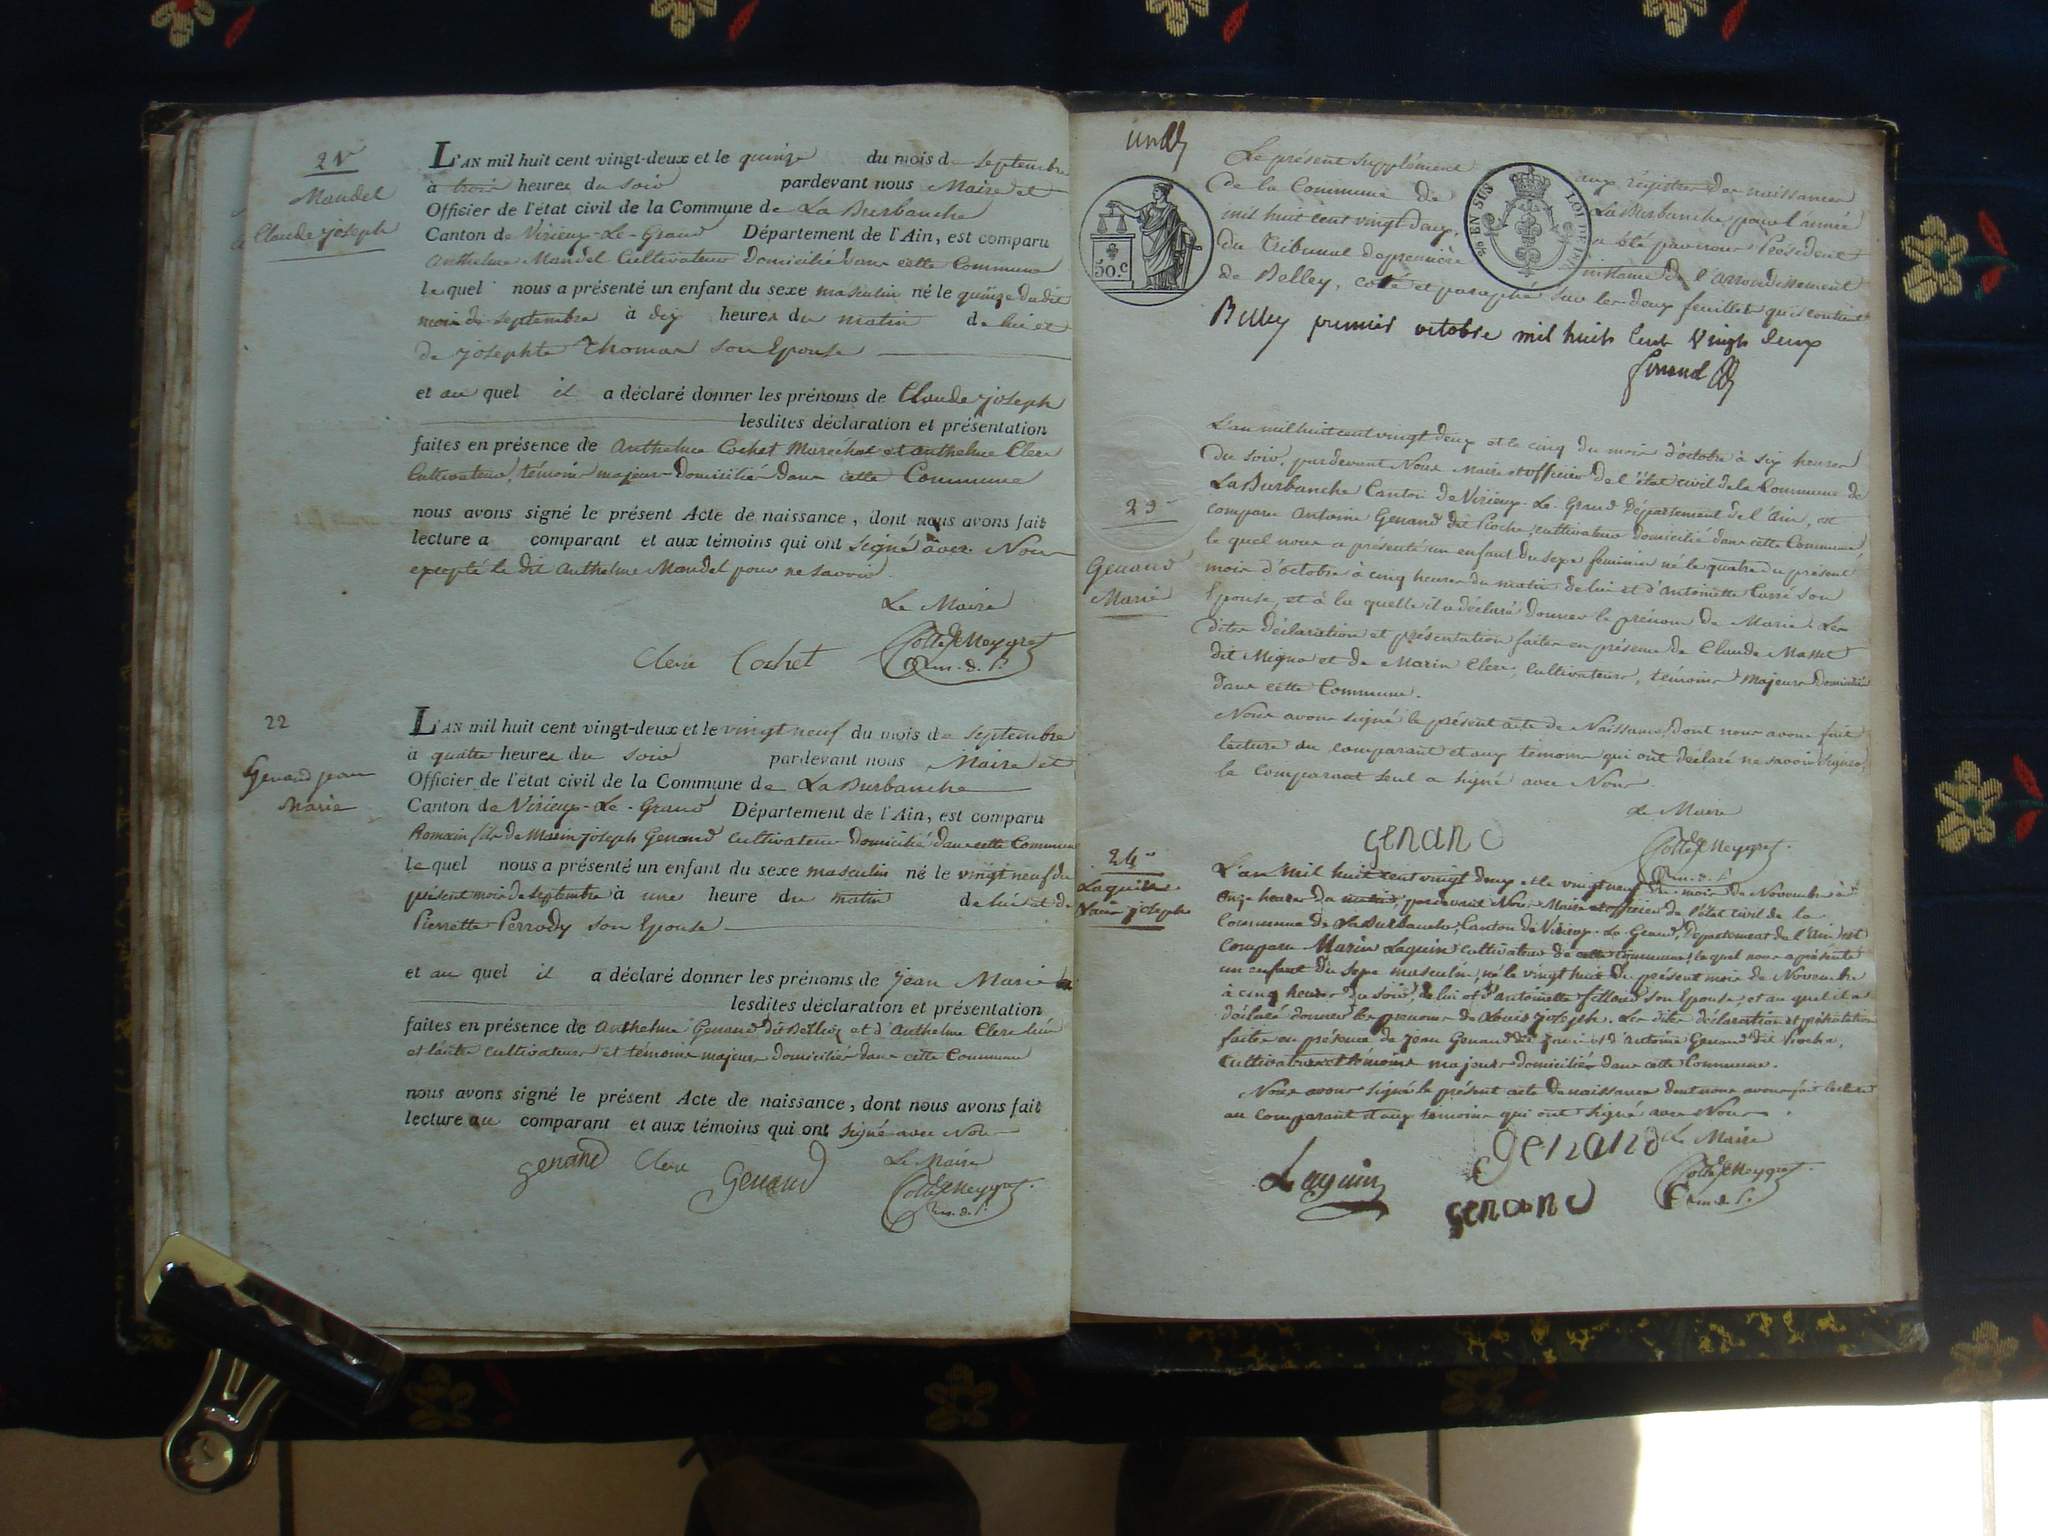 21
Mandel
Claude joseph
L'AN mil huit cent vingt-deux et le quinze du mois de septembre
à trois heures du soir pardevant nous Maire et
Officier de l'état civil de la Commune de La Burbanche
Canton de Virieux-Le-Grand Département de l'Ain, est comparu
anthelme Mandel Cultivateur domicilié dans cette Commune
lequel nous a présenté un enfant du sexe masculin né le quinze du dit
mois de septembre à dix heures du matin de lui et
de josephte Thomas son Epouse
et au quel il a déclaré donner les prénoms de Claude joseph
lesdites déclaration et présentation
faites en présence de Anthelme Cochet Maréchal et anthelme Clerc
Cultivateur, témoins majeurs domiciliés dans cette Commune
nous avons signé le présent Acte de naissance, dont nous avons fait
lecture a comparant et aux témoins qui ont signé avec Nous
excepté le dit Anthelme Mandel pour ne savoir.
Le Maire
Clerc Cochet
22
Genand jean
Marie
L'AN mil huit cent vingt-deux et le vingt neuf du mois de septembre
à quatre heures du soir pardevant nous Maire et
Officier de l'état civil de la Commune de La Burbanche
Canton de Virieux-Le-Grand Département de l'Ain, est comparu
Romain fils de Marin joseph Genand cultivateur domicilié dans cette Commune
lequel nous a présenté un enfant du sexe masculin né le vingt neuf du
présent mois de septembre à une heure du matin de lui et de
Pierrette Perrody son Epouse
et au quel il a déclaré donner les prénoms de jean Marie
lesdites déclaration et présentation
faites en présence de anthelme Genand dit et d'anthelme Clerc l'un
et l'autre cultivateurs et témoins majeurs domiciliés dans cette Commune
nous avons signé le présent Acte de naissance, dont nous avons fait
lecture au comparant et aux témoins qui ont signé avec Nous
Le Maire
genand Clerc Genand
Le présent supplément aux régistres des naissances
de la Commune de La Burbanche pour l'année
mil huit cent vingt deux, a été par nous Président
du Tribunal de première instance de l'arrondissement
de Belley, coté et paraphé sur les deux feuillets qu'il contient
Belley premier octobre mil huit Cent Vingt deux
50.c
EN SUS
LOI DE
23
Genand
Marie
L'an mil huit cent vingt deux et le cinq du mois d'octobre à six heures
du soir, pardevant Nous Maire et officier de l'état civil de la Commune de
La Burbanche Canton de Virieux-Le-Grand Département de l'Ain, est
comparu Antoine Genand dit Pioche, cultivateur domicilié dans cette Commune,
le quel nous a présenté un enfant du sexe feminin né le quatre du présent
mois d'octobre à cinq heures du matin de lui et d'Antoinette Carré son
Epouse, et à la quelle il a déclaré donner le prénom de Marie. Les
dites déclaration et présentation faites en présence de Claude Masset
dit Migno et de Marin Clerc, cultivateurs, témoins Majeurs domiciliés
dans cette Commune.
Nous avons signé le présent acte de Naissance, dont nous avons fait
lecture au comparant et aux témoins qui ont déclaré ne savoir signer,
le comparant seul a signé avec Nous
Le Maire
genand
24
Laguin
Louis joseph
L'an Mil huit cent vingt deux et le vingt neuf du mois de Novembre à
onze heures du matin, pardevant Nous Maire et officier de l'état civil de la
Commune de La Burbanche, Canton de Virieux-Le-Grand, Département de l'Ain, est
comparu Marin Laguin cultivateur de cette commune, le quel nous a présenté
un enfant du sexe masculin, né le vingt huit du présent mois de Novembre
à cinq heures du soir, de lui et d'Antoinette filloud son Epouse, et au quel il a
déclaré donner les prénoms de Louis joseph. Les dites déclaration et présentation
faites en présence de jean Genand dit et d'Antoine Genand dit Pioche,
Cultivateurs et témoins majeurs domiciliés dans cette Commune.
Nous avons signé le présent acte de naissance dont nous avons fait lecture
au comparant et aux témoins qui ont signé avec Nous.
Le Maire
Laguin genand
genand